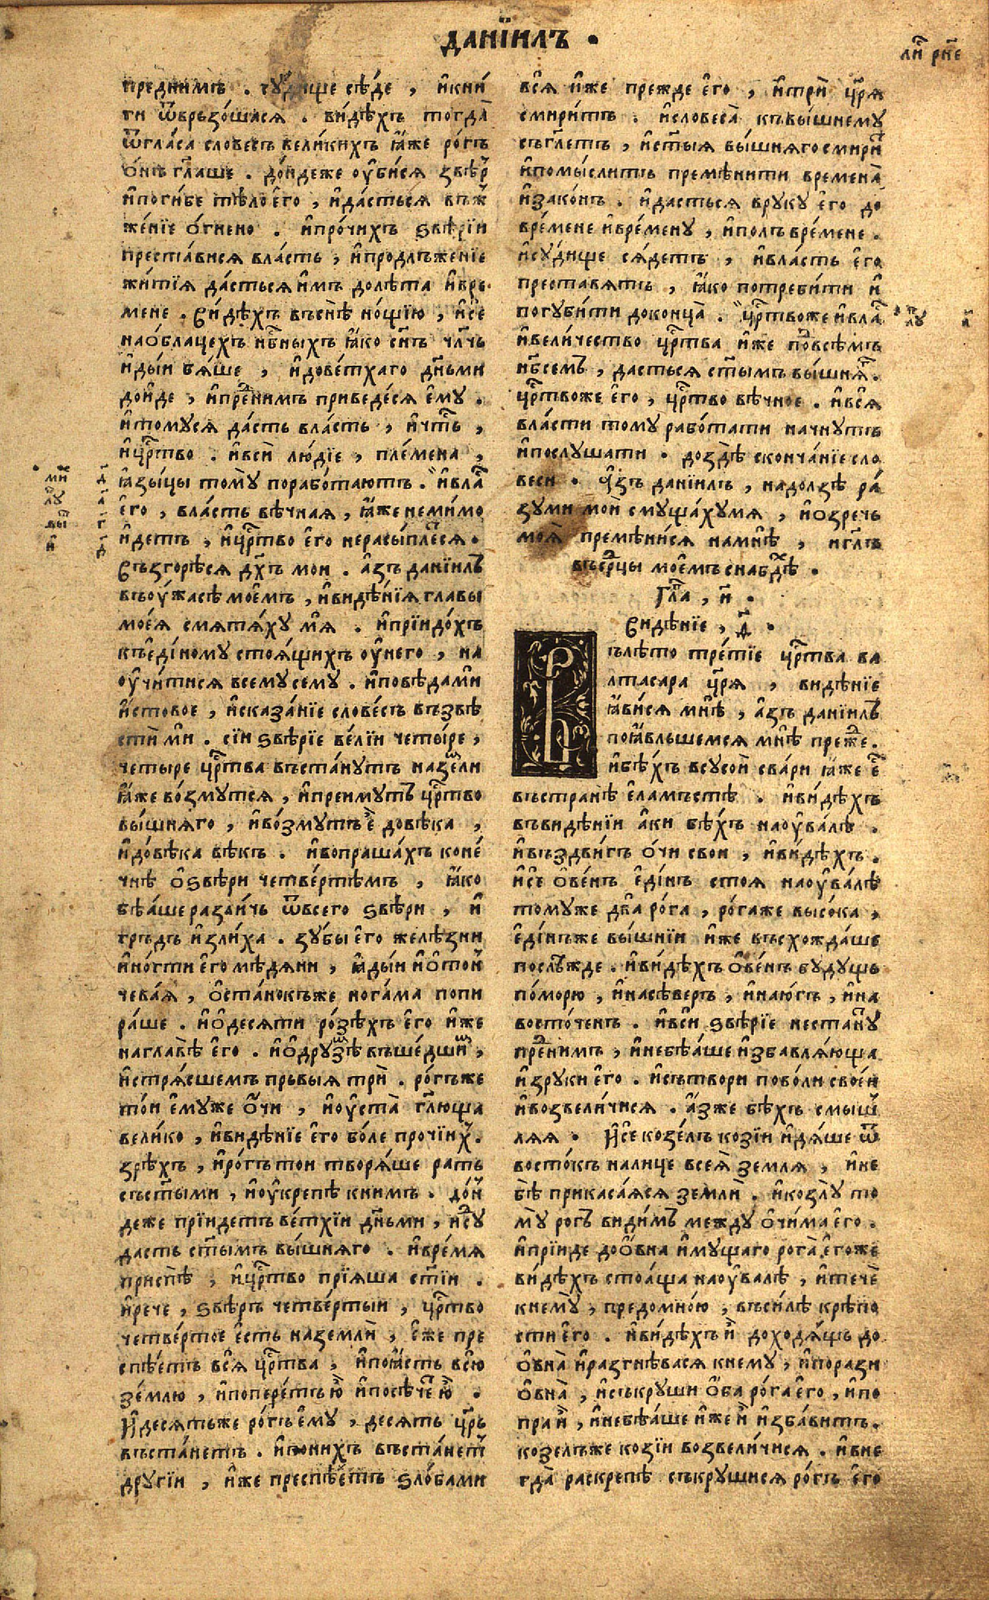 данїилъ .
ли҇ рн҃е
преднимъ . судище сѣде , и҆кни́
ги ѿврьзо́шася . ви́дѣхъ тогда̀
ѿгла́са слове́съ вели́кихъ ꙗ҆́же ро́гъ
о́нъ гл҃аше . до́йдеже оу҆би́ся звѣ́р
и҆поги́бе тѣ́ло е҆го̀ , и҆да́сться въ́ж
же́нїе о́гнено . и҆про́чихъ ѕвѣ́рїи
преста́вися вла́сть , и҆продлъже́нїе
житїя̀ да́стъся и҆́мъ долѣ́та и҆́вре
мене . ви́дѣхъ въснѣ̀ но́щїю , и҆се́
наѻ҆́блацехъ нб҃ныхъ ꙗ҆́ко сн҃ъ чл҃чь
и҆ды́и бя́ше , и҆дове́тхаго дн҃ьми
до́йде , и҆пре҇ни́мъ приведе́ся е҆му̀ .
и҆тому́ся да́сть вла́сть , и҆че҇ть ,
и҆цр҇тво . и҆вси̑ лю́дїе , племена ,
ꙗ҆зы́цы тому̀ порабо́таютъ . и҆вла҇
е҆го̀ , вла́сть вѣ́чная , ꙗ҆́же неми́мо
и҆́детъ , и҆цр҇тво е҆го̀ нерасы́плеся .
възгорѣ́ся дх҃ъ мои . а҆́зъ данїи́лъ
въоу́жасѣ мое́мъ , и҆видѣ́нїя главы̀
моея̀ смятя́ху мя . и҆прїидо́хъ
къеди́ному стоя́щихъ оу҆него̀ , на
оу҆чи́тися всему̀ сему̀ . и҆повѣ́дами
и҆́стовое , и҆сказа́нїе слове́съ възвѣ
сти́ ми . сїи̑ ѕвѣ́рїе ве́лїи четы́ре ,
четы́ре цр҇тва въста́нутъ назе҇мли
ꙗ҆́же во́змутся , и҆преи́мутъ цр҇тво
вы́шняго , и҆во́змутъ е҆̀ довѣ́ка ,
и҆до́вѣка вѣ́къ . и҆вопраша́хъ коне́
чнѣ ѻ҆ѕвѣ́ри четве́ртѣмъ , ꙗ҆́ко
бѣ́аше разли́чь ѿвсего̀ ѕвѣ́ри , и҆
гръ́дъ и҆зли́ха . зу́бы е҆го̀ желѣ́зни
и҆но́гти е҆го̀ мѣ́дяни , ꙗ҆ды́и и҆ѻ҆то́н
чева́я , ѻ҆ста́нокъже нога́ма попи
ра́ше . и҆ѻ҆десяти́ ро́зѣхъ е҆го̀ и҆́же
наглавѣ̀ е҆го̀ . и҆ѻ҆дру́зѣ въше́дши҇ ,
и҆стря́сшемъ прьвыя трѝ . ро́гъже
то́и е҆му́же о҆́чи , и҆оу҆ста̀ гл҃юща
вели́ко , и҆видѣ́нїе е҆го̀ бо́ле про́чїи҇х .
зрѣ́хъ , и҆ро́гъ то́и творя́ше ра́ть
съст҃ы́ми , и҆оу҆крепѣ̀ кни́мъ . до́й
деже прїи́детъ ве́тхїи дн҃ьми , и҆су҇
дасть ст҃ы́мъ вы́шняго . и҆вре́мя
приспѣ̀ , и҆цр҇тво прїя́ша ст҃їи .
и҆речѐ , ѕвѣ́рь четве́ртыи , цр҇тво
четве́ртое е҆́сть наземлѝ , е҆́же пре
спѣ́етъ вся̑ цр҇тва , и҆поꙗ҆́сть всю̀
зе́млю , и҆попере́тъю̀ и҆посѣче́ю̀ .
и҆десятьже ро́гъ е҆му̀ , де́сять цр҃ь
въста́нетъ . и҆пѻ҆ни́хъ въста́нет
другїи , и҆́же преспѣ́етъ ѕло́бами
вся̑ и҆́же пре́жде е҆го̀ , и҆трѝ цр҃я
смири́тъ . и҆словеса̀ къвы́шнему
съгл҃етъ , и҆ст҃ы́я вы́шняго смири҇
и҆помы́слитъ премѣни́ти времена̀
и҆зако́нъ . и҆да́сться вруку е҆го̀ до
вре́мене и҆вре́мену , и҆полъ вре́мене .
и҆су́дище ся́детъ , и҆вла́сть е҆го̀
преста́вятъ , ꙗ҆́ко потреби́ти и҆
погуби́ти доконца̀ . цр҇твоже и҆вла҇
и҆вели́чество цр҇тва и҆́же по҇всѣмъ
нб҃семъ , да́сться ст҃ы́мъ вы́шня҇ .
цр҇твоже е҆го̀ , цр҇тво вѣ́чное . и҆вся̑
вла́сти тому̀ рабо́тати начну́тъ
и҆послу́шати . доздѐ сконча́нїе сло
веси . а҆́зъ данїи́лъ , надо́лзѣ ра́
зуми мои̑ смуща́хумя , и҆ѻ҆зречь
моя̀ премѣни́ся намнѣ̀ , и҆гл҃ъ
въсе҇рцы мое́мъ снабдѣ҇ .
гл҇а , и҃ .
видѣ́нїе , д҃ .
въ лѣ́то тре́тїе цр҇тва ва
лтаса́ра цр҃я , видѣ́нїе
ꙗ҆ви́ся мнѣ̀ , а҆́зъ данїи́лъ
поꙗ҆́вльшемся мнѣ̀ пре҇же .
и҆бѣ́хъ всусои́ сва́ри ꙗ҆́же е҇
въстранѣ̀ е҆ламъ́стѣ . и҆ви́дѣхъ
въвидѣ́нїи а҆́ки бѣ́хъ наоу҆ва́лѣ .
и҆въздви́гъ о҆́чи свои , и҆ви́дѣхъ .
и҆сѐ ѻ҆ве́нъ е҆ди́нъ стоя наоу҆ва́лѣ
тому́же два ро́га , ро́гаже высо́ка ,
е҆ди́нъже вы́шнїи и҆́же въсхожда́ше
послѣ́жде . и҆ви́дѣхъ ѻ҆ве́нъ бу́дущь
по́морю , и҆насѣ́веръ , и҆наю́гъ , и҆на
восто́ченъ . и҆вси̑ ѕвѣ́рїе неста́ну
пре҇ни́мъ , и҆небѣ́аше и҆збавля́юща
и҆зруки̑ е҆го̀ . и҆сътвори̑ пово́ли свое́и
и҆возвели́чися . а҆́зже бѣ́хъ смы́ш
ляя . и҆сѐ козе́лъ ко́зїи и҆дя́ше ѿ
восто́къ нали́це всея̀ земля̀ , и҆не
бѣ̀ прикаса́яся землѝ . и҆козлу̀ то
му̀ ро́гъ ви́димъ между ѻ҆чи́ма е҆го̀ .
и҆прїи́де доѻ҆вна̀ и҆му́щаго рога̀ е҆го́же
ви́дѣхъ стоя́ща наоу҆ва́лѣ , и҆течѐ
кнему̀ , предомно́ю , въси́лѣ крѣ́по
сти е҆го̀ . и҆ви́дѣхъ и҆̀ доходя́щь до
ѻ҆вна̀ и҆разгнѣ́вася кнему , и҆порази
ѻ҆вна̀ , и҆съкруши ѻ҆́ба ро́га е҆го̀ , и҆по
пра и҆̀ , и҆небѣ́аше и҆́же и҆̀ и҆зба́витъ .
козе́лъже ко́зїи возвели́чися . и҆вне
гда̀ раскрепѣ̀ съкруши́ся ро́гъ е҆го̀